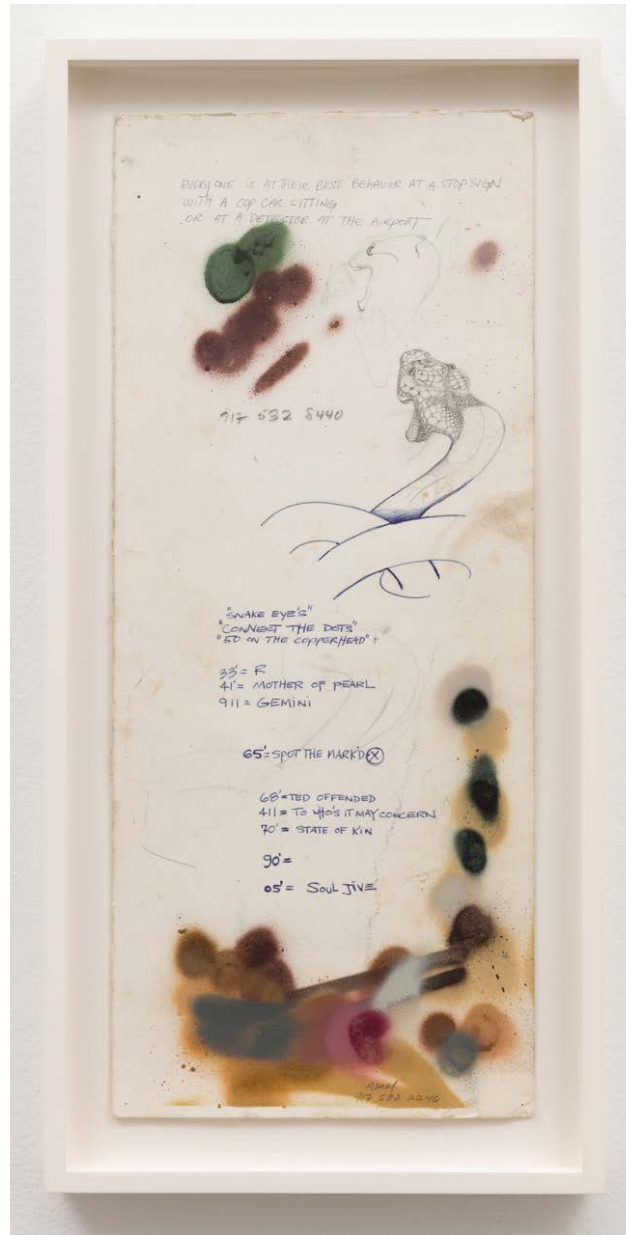 EVERYONE IS AT THEIR BEST BEHAVIOR AT A STOP SIGN
WITH A COP CAR SITTING
OR AT A DETECTOR AT THE AIRPORT
917 532 8440
"SNAKE EYE'S"
"CONNECT THE DOTS"
"5D ON THE COPPERHEAD"
33'= R
41'= MOTHER OF PEARL
911= GEMINI
65'=SPOT THE MARK'D X
68'=TED OFFENDED
411= TO WHO'S IT MAY CONCERN
70'= STATE OF KIN
90'=
05'= SOUL JIVE
ADAM
917 582 2246